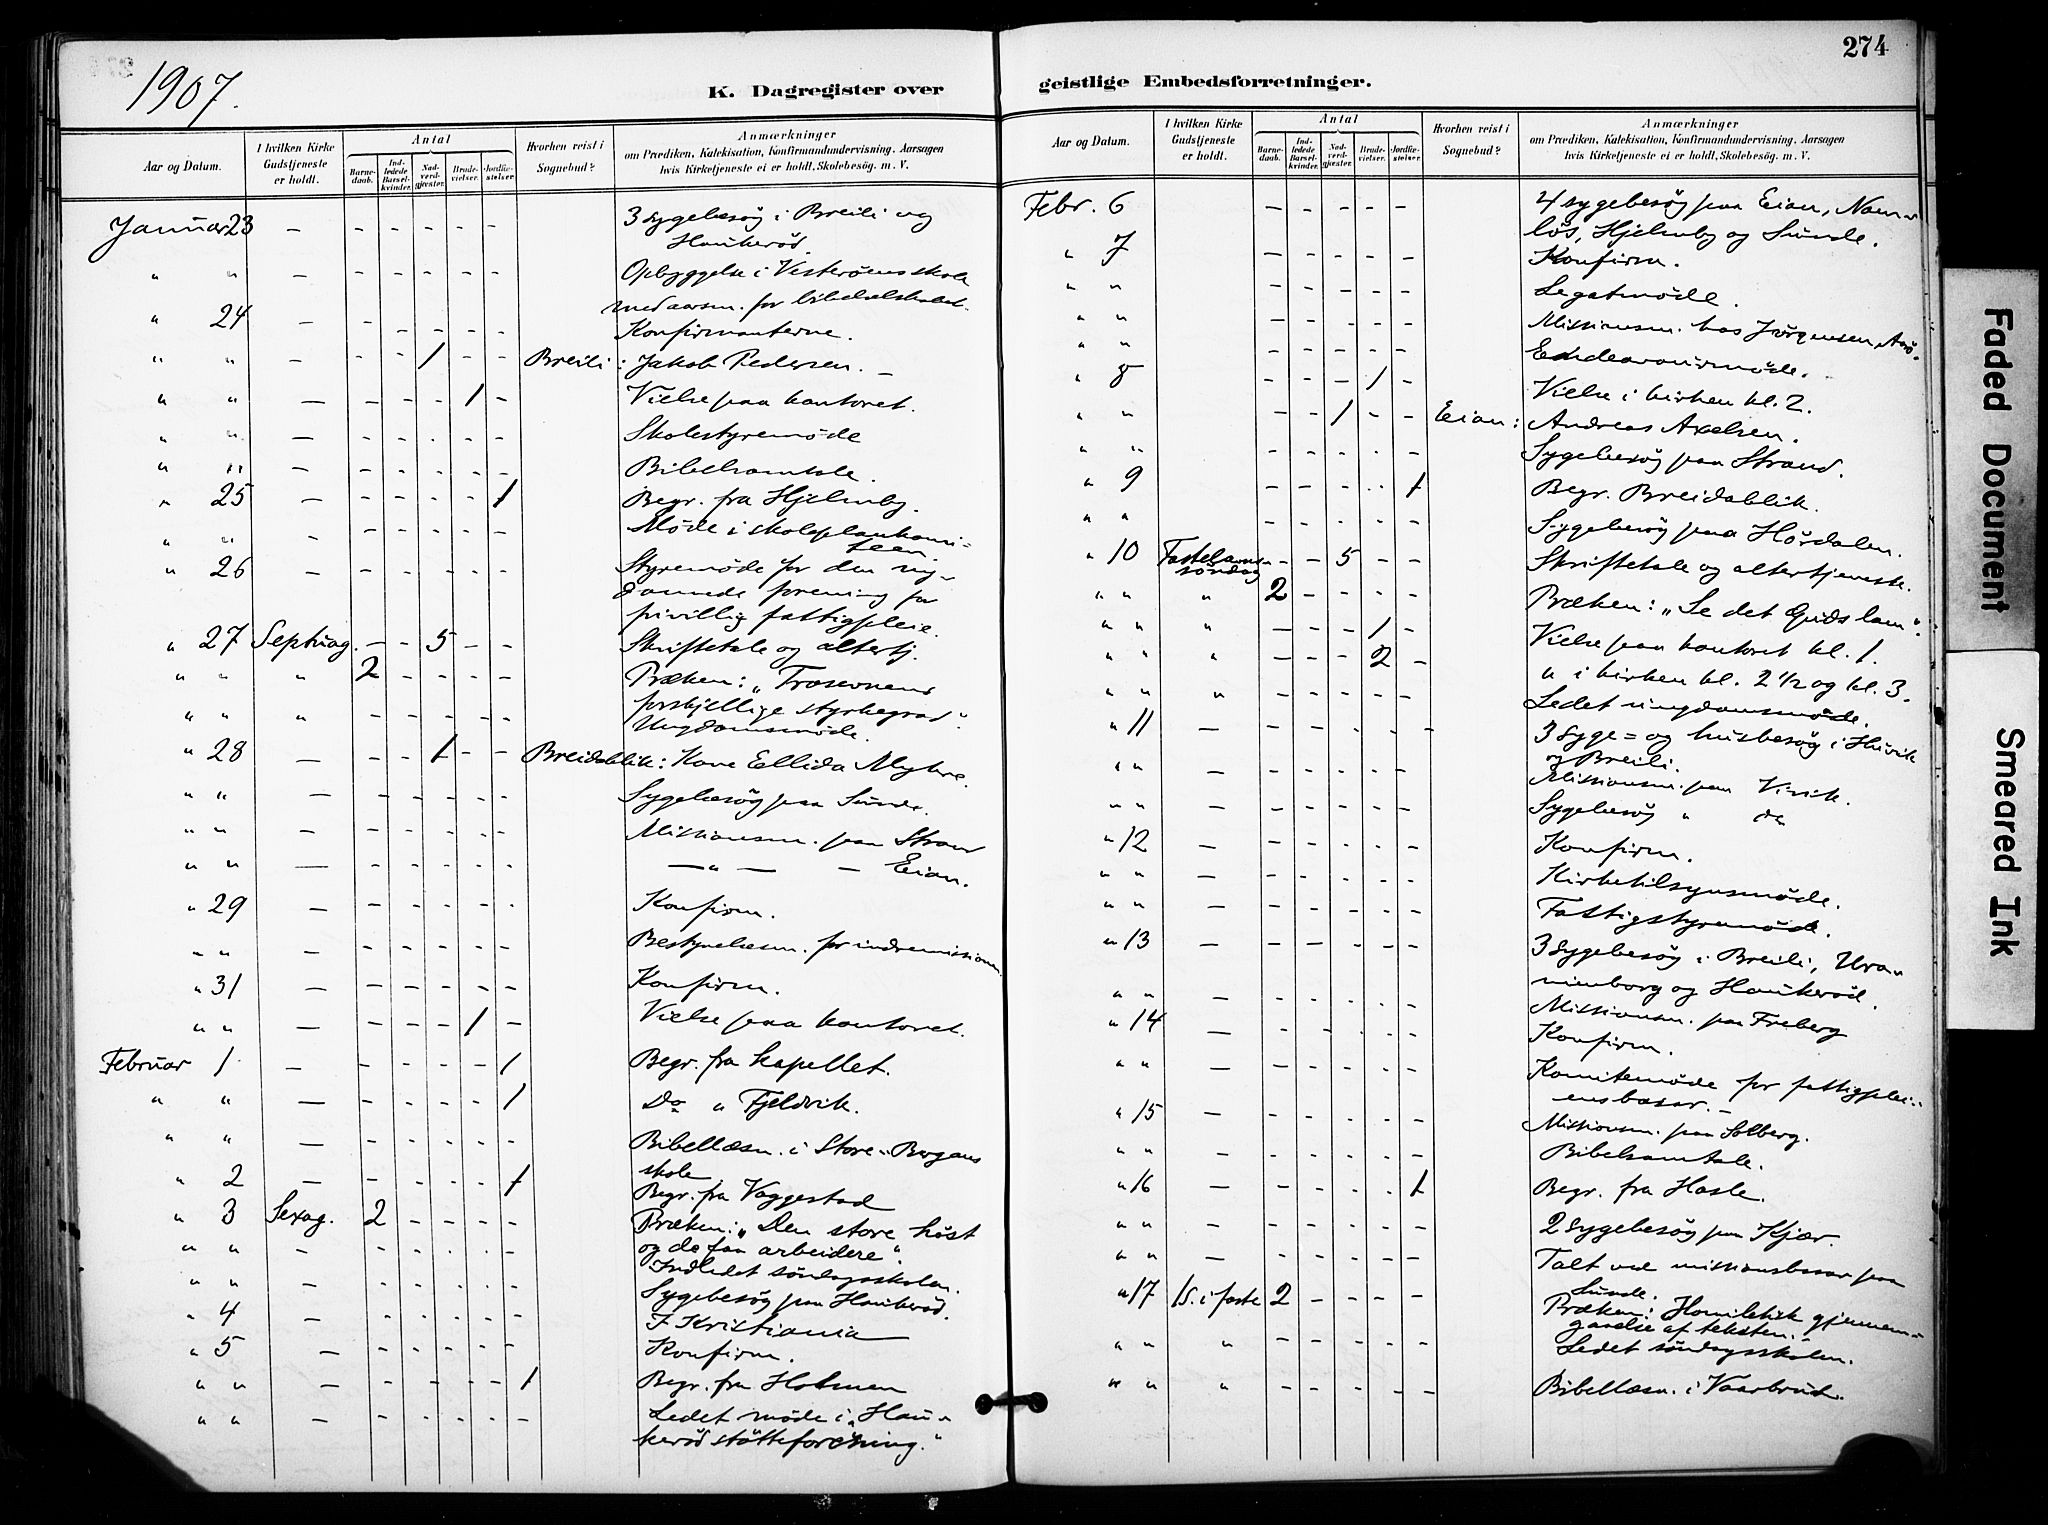 1907.
K. Dagregister over
Aar og Datum.
I hvilken Kirke Gudstjeneste er holdt.
Antal
Barne-daab.
Ind-ledede Barsel-kvinder.
Nad-verd-gjester.
Brude-vielser.
Jordfæ-stelser.
Hvorhen reist i Sognebud?
Anmærkninger
om Prædiken, Katekisation, Konfirmandundervisning. Aarsagen
hvis Kirketjeneste ei er holdt, Skolebesøg. m. V.
Januar 23 – – – – – – 3 sygebesøg i Breili og
Haukerød.
" " – – – – – – Opbyggelse i Vesterøens skole
med aarsm. for bibelselskabet.
" 24 – – – – – – Konfirmanterne.
" " – – – 1 – – Breili: Jakob Pedersen. –
" " – – – – 1 – Vielse paa kontoret.
" " – – – – – – Skolestyremøde
" " – – – – – – Bibelsamtale.
" 25 – – – – – 1 Begr. fra Hjelmby.
" " – – – – – – Møde i skoleplankomi=
teen.
" 26 – – – – – – Styremøde for den ny-
dannede forening for
frivillig fattigpleie.
" 27 Septuag. – – 5 – – Skriftetale og altertj.
" " " 2 – – – – Præken: "Trosevnens
forskjellige styrkegrad".
" " " – – – – – Ungdomsmøde.
" 28 – – – 1 – – Breidablik: Kone Ellida Myhre.
" " – – – – – – Sygebesøg paa Sunde.
" " – – – – – – Missionsm. paa Strand
" " – – – – – – — " — – Eian.
" 29 – – – – – – Konfirm.
" " – – – – – – Bestyrelsesm. for indremissionen.
" 31 – – – – – – Konfirm.
" " – – – – 1 – Vielse paa kontoret.
Februar 1 – – – – – 1 Begr. fra kapellet.
" " – – – – 1 Do " Fjeldvik.
" " – – – – – – Bibellæsn. i Store-Bergans
skole
" 2 – – – – – 1 Begr. fra Vaggestad
" 3 Sexag. 2 – – – – Præken: "Den store høst
og de faa arbeidere".
" " – – – – – – Indledet søndagsskolen.
" " – – – – – – Sygebesøg paa Haukerød.
" 4 – – – – – – I Kristiania
" 5 – – – – – – Konfirm.
" " – – – – – 1 Begr. fra Holmen
" " – – – – – – Ledet møde i "Hau-
kerød støtteforening."
274
geistlige Embedsforretninger.
Aar og Datum.
I hvilken Kirke Gudstjeneste er holdt.
Antal
Barne-daab.
Ind-ledede Barsel-kvinder.
Nad-verd-gjester.
Brude-vielser.
Jordfæ-stelser.
Hvorhen reist i Sognebud?
Anmærkninger
om Prædiken, Katekisation, Konfirmandundervisning. Aarsagen
hvis Kirketjeneste ei er holdt, Skolebesøg, m. V.
Febr. 6 – – – – – 4 sygebesøg paa Eian, Nam-
løs, Hjelmby og Sunde.
" 7 – – – – – Konfirm.
" " – – – – – Legatmøde.
" " – – – – – Missionsm. hos Jørgensen,
" " – – – – – Endeavourmøde.
" 8 – – – 1 – Vielse i kirken kl. 2.
" " – – 1 – – Eian: Andreas Axelsen.
" " – – – – – Sygebesøg paa Strand.
" 9 – – – – 1 Begr. Breidablik.
" " – – – – – Sygebesøg paa Hørdalen.
" 10 Fastelavns-
søndag – – 5 – – Skriftetale og altertjeneste.
" " " 2 – – – – Præken: "Se det Guds lam".
" " " – – – 1 – Vielse paa kontoret kl. 1.
" " " – – – 2 – " i kirken kl. 2 1/2 og kl. 3.
" " " – – – – – Ledet ungdomsmøde.
" 11 – – – – – – 3 syge= og husbesøg i Huvik
og Breili.
" " – – – – – – Missionsm. paa Virik.
" " – – – – – – Sygebesøg " do
" 12 – – – – – – Konfirm.
" " – – – – – – Kirketilsynsmøde.
" " – – – – – – Fattigstyremøde.
" 13 – – – – – – 3 sygebesøg i Breili, Ura-
nienborg og Haukerød.
" " – – – – – – Missionsm. paa Freberg
" 14 – – – – – – Konfirm.
" " – – – – – – Komitemøde for fattigplei-
ensbasar. –
" 15 – – – – – – Missionsm. paa Solberg.
" " – – – – – – Bibelsamtale.
" 16 – – – – – 1 Begr. fra Hasle.
" " – – – – – – 2 sygebesøg paa Kjær.
" " – – – – – – Talt ved missionsbasar paa
Sunde.
" 17 1S. i faste 2 – – – – Præken: Homiletisk gjennem-
gaaelse af teksten. –
" " " – – – – – Ledet søndagsskolen.
" " " – – – – – Bibellæsn. i Vaarbrud.
Faded Document
Smeared Ink